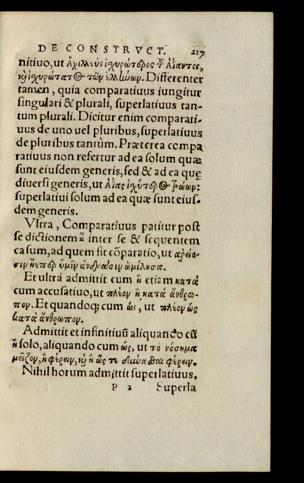 DE CONSTRVCT. 217
nitiuo, ut Ἀχιλλεὺς ἰσχυρώτερος τῶ Αἴαντος,
κỳ ἰσχυρώτατος τῶν ἑλλήνων. Differenter
tamen, quia comparatiuus iungitur
singulari & plurali, superlatiuus tan-
tum plurali. Dicitur enim comparati-
uus de uno uel pluribus, superlatiuus
de pluribus tantùm. Præterea compa
ratiuus non refertur ad ea solum quæ
sunt eiusdem generis, sed & ad ea quę
diuersi generis, ut Αἴας
superlatiui solum ad ea quæ sunt eius-
dem generis.
Vltra, Comparatiuus patitur post
se dictionem ἢ inter se & sequentem
casum, ad quem fit cōparatio, ut ἀρείο-
σιν ἠέπερ ὑμῖν ἀνδράσιν ὡμίλησα.
Et ultra admittit cum ἢ etiam κατὰ
cum accusatiuo, ut πλέον ἢ κατὰ ἄνθρω-
πον. Et quandoq; cum ὡς, ut πλέον ὡς
κατὰ ἄνθρωπον.
Admittit et infinitiuū aliquando cū
ἢ solo, aliquando cum ὡς, ut τὸ νόσημα
μεῖζον, ἢ φέρειν, κỳ ἢ ὥς τε δύνασθαι φέρειν.
Nihil horum admittit superlatiuus.
P 2 Superla